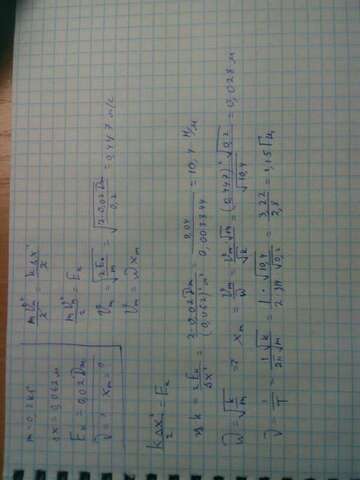 m = 0,2 кг
Δx = 0,062 м
Eк = 0,02 Дж
ν = ? xₘ = ?
mϑ²ₘ/2 = kΔx²/2
mϑ²ₘ/2 = Eк
ϑₘ = √(2Eк/m) = √(2·0,02 Дж/0,2) = 0,447 м/с
ϑₘ = ωxₘ
kΔx²/2 = Eк
⇒ k = 2Eк/Δx² = 2·0,02 Дж/(0,062)² м² = 0,04/0,003844 = 10,4 Н/м
ω = √(k/m) ⇒ xₘ = ϑₘ/ω = ϑₘ√m/√k = (0,447)·√0,2/√10,4 = 0,028 м
ν = 1/T = 1√k/2π√m = 1·√10,4/2·3,14√0,2 = 3,22/2,8 = 1,15 Гц